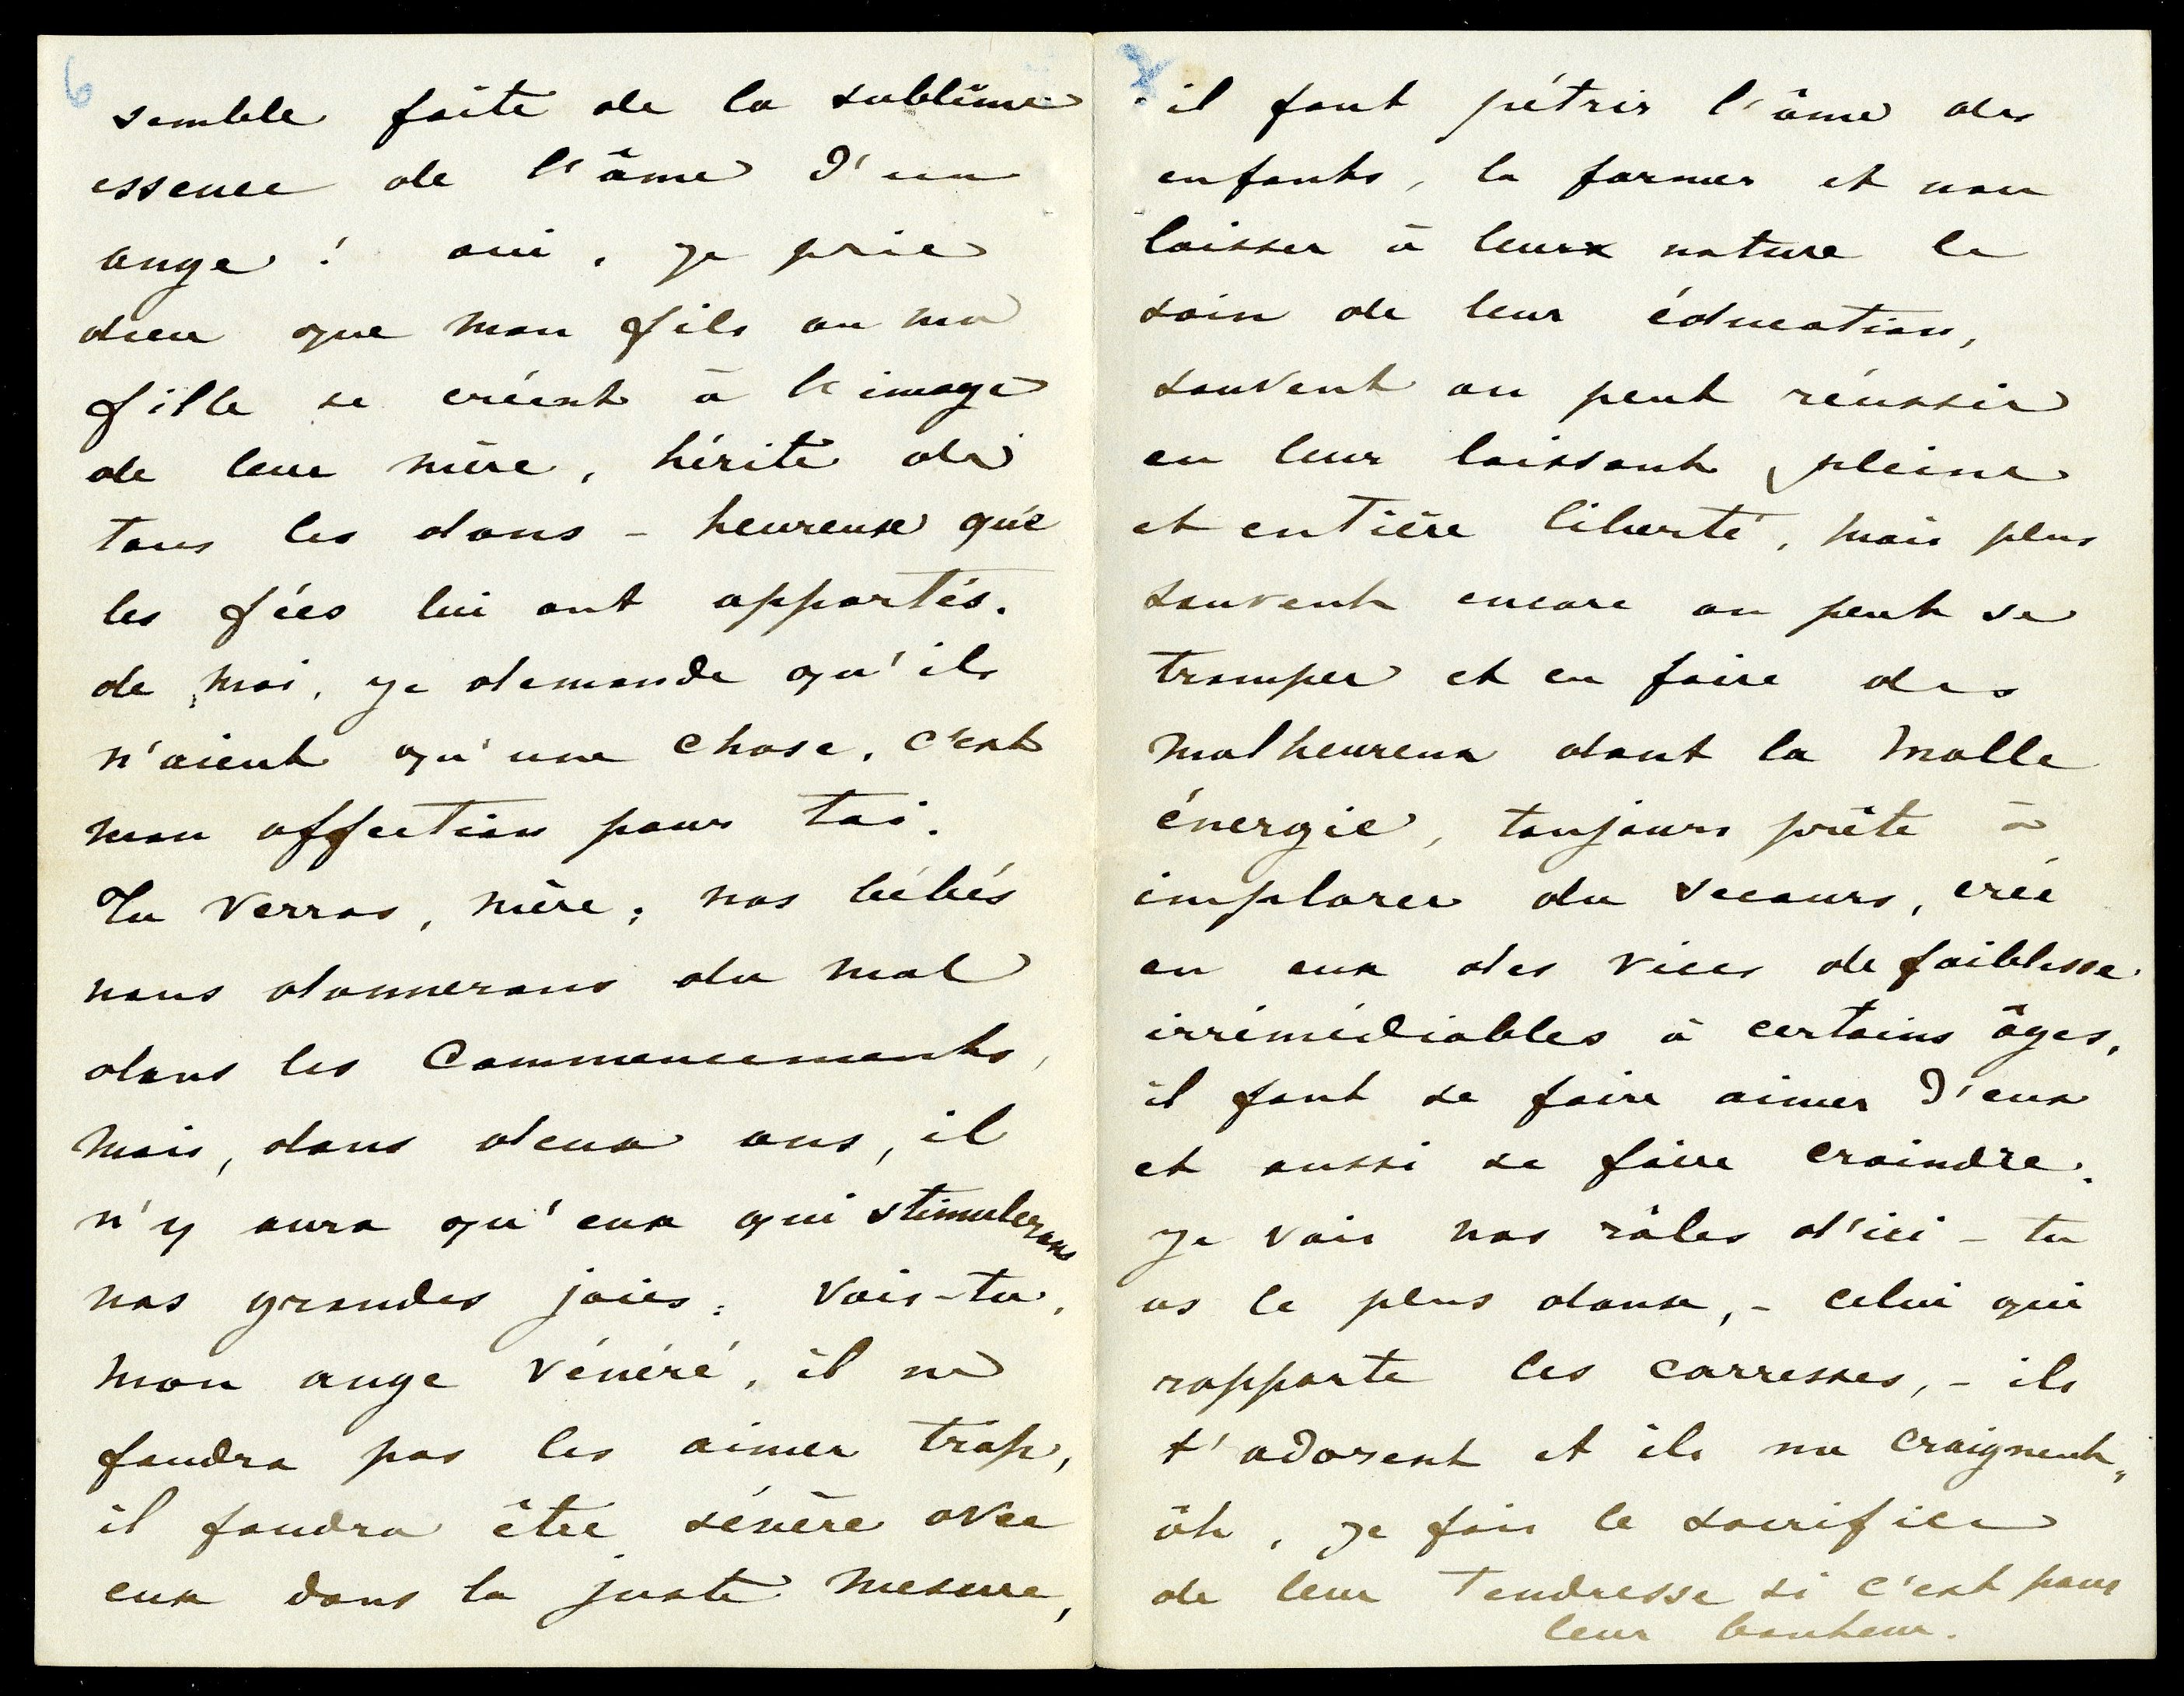 6
semble faite de la sublime
essence de l'âme d'un
ange ! oui, je prie
dieu que mon fils ou ma
fille se créent à l'image
de leur mère, hérite de
tous les dons - heureuse que
les fées lui ont apportés.
de moi, je demande qu'ils
n'aient qu'une chose, c'est
mon affection pour toi.
Tu verras, mère, nos bébés
nous donnerons du mal
dans les commencements,
mais, dans deux ans, il
n'y aura qu'eux qui stimulerons
nos grandes joies. Vois-tu,
mon ange vénéré, il ne
faudra pas les aimer trop,
il faudra être sévère avec
eux dans la juste mesure,
7
il faut pétrir l'âme des
enfants, la former et non
laisser à leur nature le
soin de leur éducation,
souvent on peut réussir
en leur laissant pleine
et entière liberté, mais plus
souvent encore on peut se
tromper et en faire des
malheureux dont la molle
énergie, toujours prête à
implorer du secours, crée
en eux des vices de faiblesse
irrémédiables à certains âges,
il faut se faire aimer d'eux
et aussi se faire craindre.
je vois nos rôles d'ici - tu
as le plus doux, - celui qui
rapporte les carresses, - ils
t'adorent et ils me craignent,
ôh, je fais le sacrifice
de leur tendresse si c'est pour
leur bonheur.